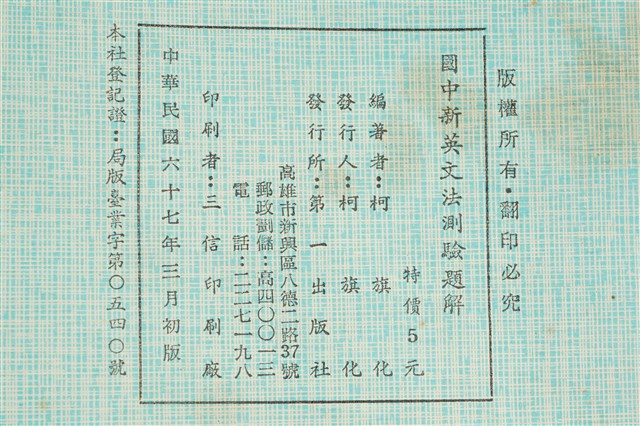 版權所有•翻印必究
國中新英文法測驗題解
特價5元
編著者：柯旗化
發行人：柯旗化
發行所：第一出版社
高雄市新興區八德二路37號
郵政劃儲：高四〇〇一三
電話：二二七一九八
印刷者：三信印刷廠
中華民國六十七年三月初版
本社登記證：局版臺業字第〇五四〇號